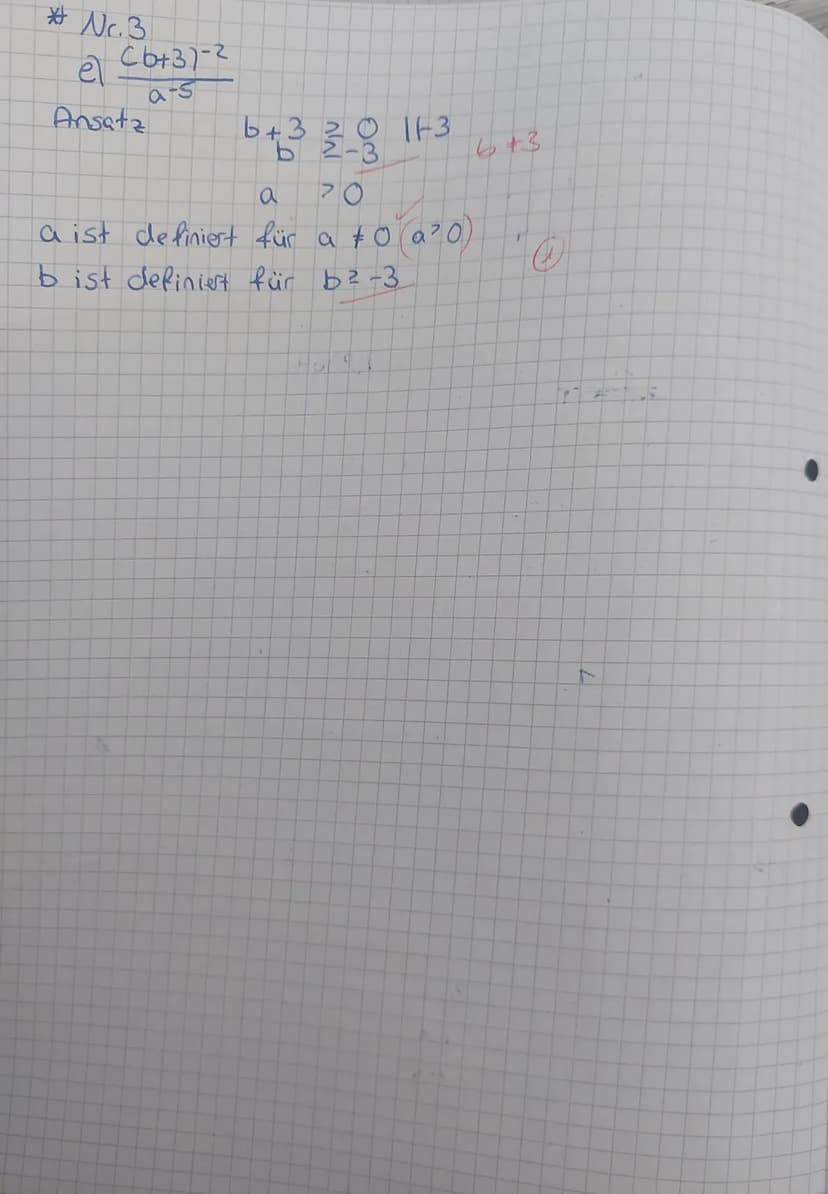 * Nr. 3
e) (b+3)^-2 / a^-5
Ansatz b + 3 ≥ 0 |-3
b ≥ -3 b + 3
a > 0
a ist definiert für a ≠ 0 (a > 0)
b ist definiert für b ≥ -3